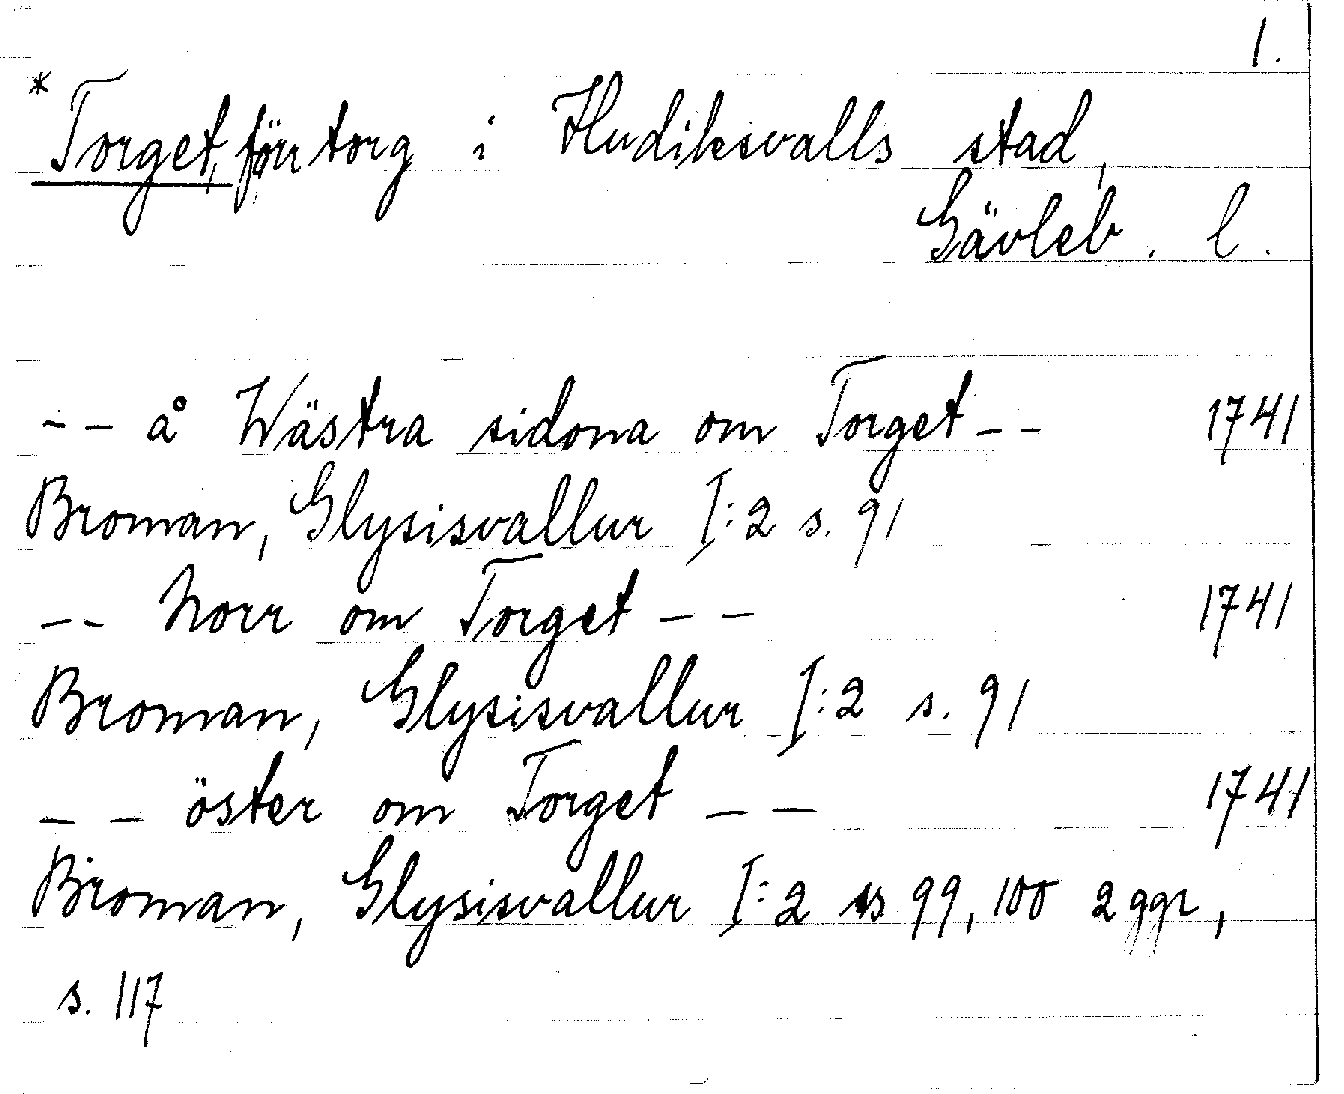 1.
*Torget, förr torg i Hudiksvalls stad,
Gävleb. l.
-- å Wästra sidona om Torget -- 1741
Broman, Glysisvallur I:2 s. 91
-- Norr om Torget -- 1741
Broman, Glysisvallur I:2 s. 91
-- öster om Torget -- 1741
Broman, Glysisvallur I:2 ss 99, 100 2 ggr,
s. 117